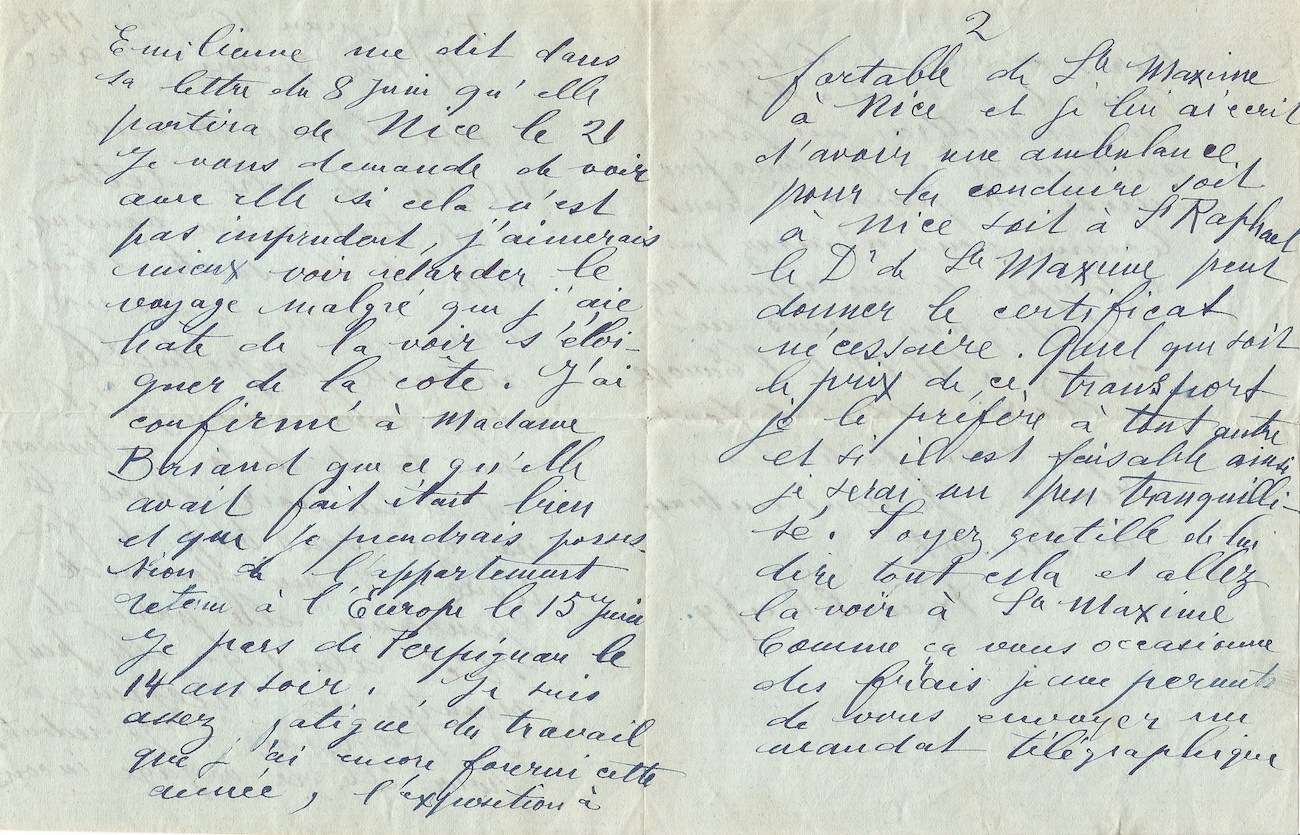 Emilienne me dit dans
sa lettre du 8 Juin qu'elle
partira de Nice le 21
Je vous demande de voir
avec elle si cela n'est
pas imprudent, j'aimerais
mieux voir retarder le
voyage malgré que j'aie
hate de la voir s'éloi-
gner de la côte. J'ai
confirmé à Madame
Briand que ce qu'elle
avait fait était bien
et que je prendrais posses-
sion de l'appartement
retenu à l'Europe le 15 Juin
Je pars de Perpignan le
14 au soir. Je suis
assez fatigué du travail
que j'ai encore fourni cette
année, l'exposition à
2
fortable de Ste Maxime
à Nice et je lui ai ecrit
d'avoir une ambulance
pour la conduire soit
à Nice soit à St Raphael
le Dr de Ste Maxime peut
donner le certificat
nécessaire. Quel que soit
le prix de ce transport
je le préfère à tout autre
et si il est faisable ainsi
je serai un peu tranquilli-
sé. Soyez gentille de lui
dire tout cela et allez
la voir à Ste Maxime
Comme ça vous occasionne
des frais je me permets
de vous envoyer un
mandat télégraphique